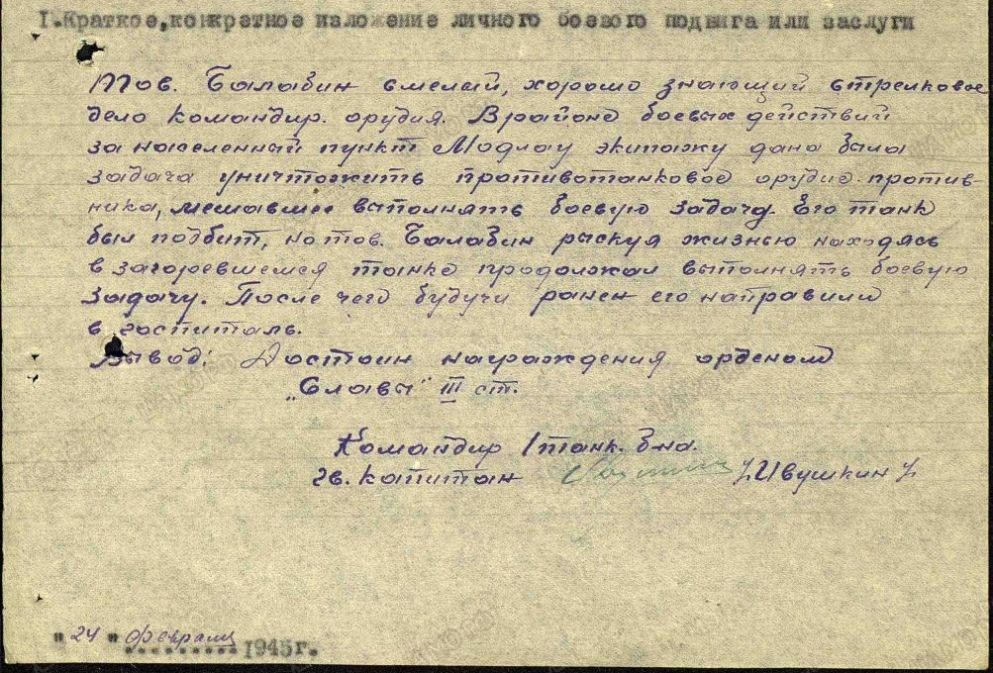 I.Краткое,конкретное изложение личного боевого подвига или заслуги
Тов. Балабин смелый, хорошо знающий стрелковое
дело командир. орудия. В районе боевых действий
за населенный пункт Модлау экипажу дана была
задача уничтожить противотанковое орудие против-
ника, мешавшее выполнять боевую задачу. Его танк
был подбит, но тов. Балабин рискуя жизнью находясь
в загоревшемся танке продолжал выполнять боевую
задачу. После чего будучи ранен его направили
в госпиталь.
Вывод: Достоин награждения орденом
„Славы" III ст.
Командир 1 танк. б-на.
гв. капитан /Ивушкин/
"24" февраля 1945г.